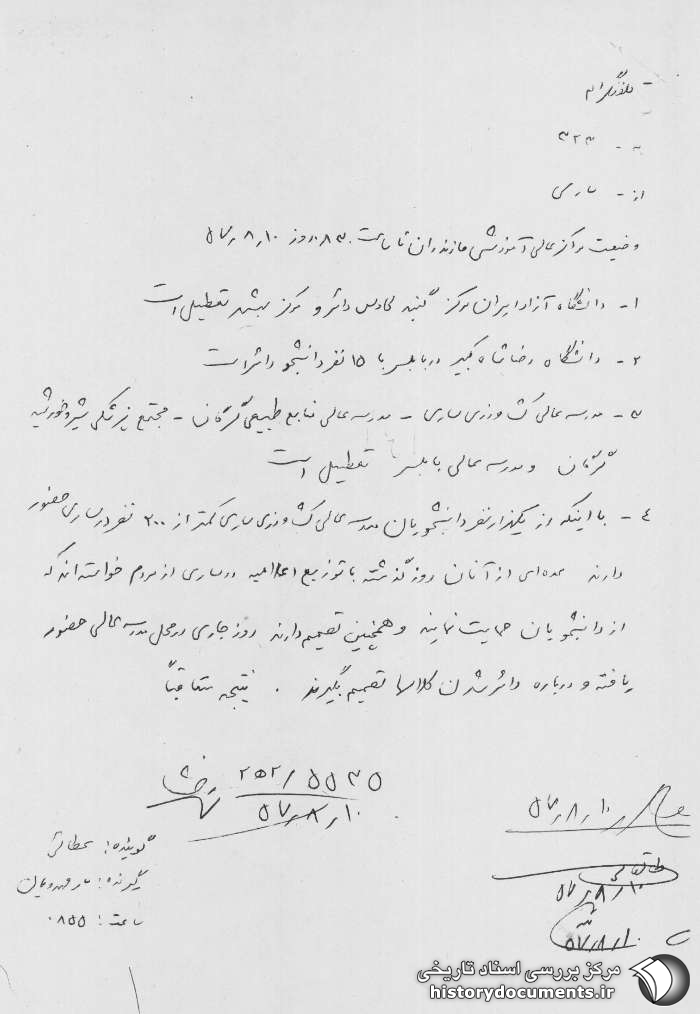 - تلفنگرام
به - ۳۲۳
از - ساری
وضعیت مراکز عالی آموزشی مازندران تا ساعت ۰۸۳۰ روز ۵۷٫۸٫۱۰
۱- دانشگاه آزاد ایران مرکز گنبد کاوس دائر و مرکز بهشهر تعطیل است
۲- دانشگاه رضا شاه کبیر در بابلسر با ۱۵ نفر دانشجو دائر است
۳- مدرسه عالی کشاورزی ساری - مدرسه عالی منابع طبیعی گرگان - مجتمع پزشکی شیر و خورشید
گرگان و مدرسه عالی بابلسر تعطیل است
٤- با اینکه از یکهزار نفر دانشجویان مدرسه عالی کشاورزی ساری کمتر از ۲۰۰ نفر در ساری حضور
دارند عده‌ای از آنان روز گذشته با توزیع اعلامیه در ساری از مردم خواسته‌اند که
از دانشجویان حمایت نمایند و همچنین تصمیم دارند روز جاری در محل مدرسه عالی حضور
یافته و درباره دائر شدن کلاسها تصمیم بگیرند . نتیجه متعاقباً
۲۵۲/۵۵۳۵
۵۷٫۸٫۱۰
۵۷٫۸٫۱۰
گوینده: عطائی
گیرنده:
ساعت: ۰۸۵۵
۵۷٫۸٫۱۰
۵۷٫۸٫۱۰
مرکز بررسی اسناد تاریخی
historydocuments.ir